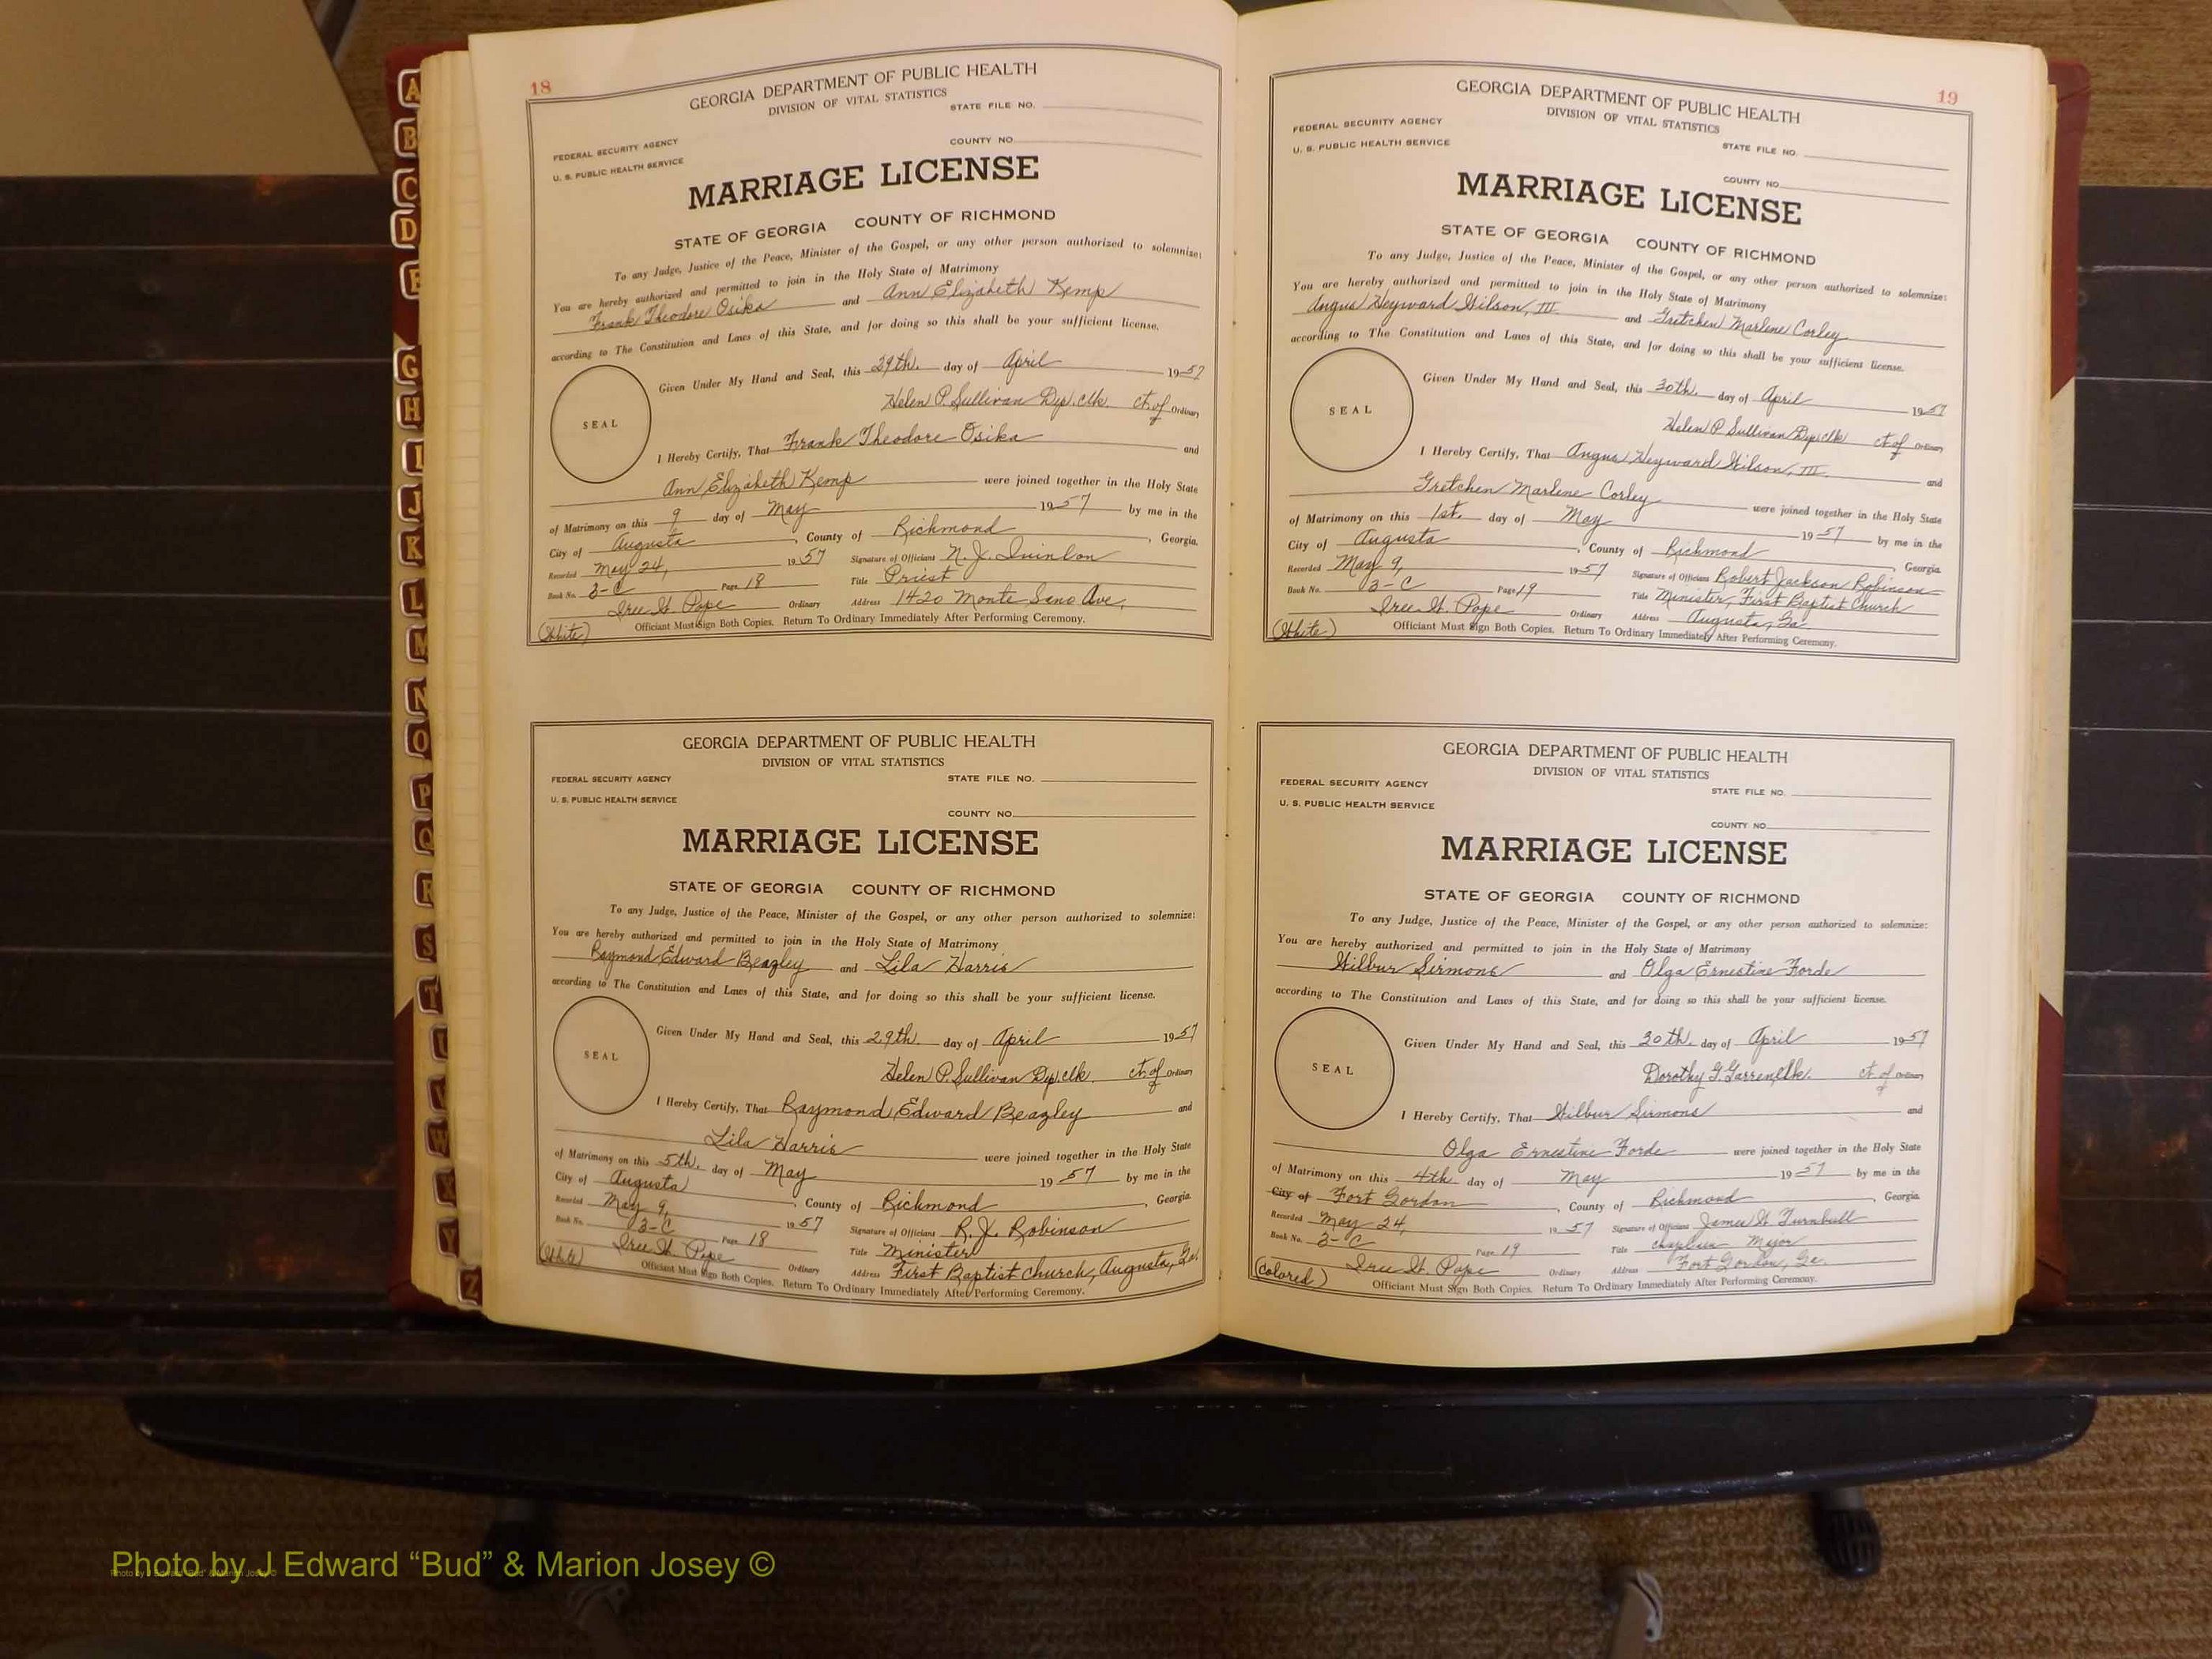 18
GEORGIA DEPARTMENT OF PUBLIC HEALTH
DIVISION OF VITAL STATISTICS
STATE FILE NO.
FEDERAL SECURITY AGENCY
U. S. PUBLIC HEALTH SERVICE
COUNTY NO.
MARRIAGE LICENSE
STATE OF GEORGIA COUNTY OF RICHMOND
To any Judge, Justice of the Peace, Minister of the Gospel, or any other person authorized to solemnize:
You are hereby authorized and permitted to join in the Holy State of Matrimony
Frank Theodore Osika and Ann Elizabeth Kemp
according to The Constitution and Laws of this State, and for doing so this shall be your sufficient license.
SEAL
Given Under My Hand and Seal, this 29th. day of April 1957
Helen P. Sullivan Dep. clk. ct. of Ordinary
I Hereby Certify, That Frank Theodore Osika and
Ann Elizabeth Kemp were joined together in the Holy State
of Matrimony on this 9 day of May 1957 by me in the
City of Augusta, County of Richmond, Georgia.
Recorded May 24, 1957 Signature of Officiant N. J. Quinlan
Book No. 3-C Page 18 Title Priest
Ordinary Address 1420 Monte Sano Ave.
(White) Officiant Must Sign Both Copies. Return To Ordinary Immediately After Performing Ceremony.
GEORGIA DEPARTMENT OF PUBLIC HEALTH
DIVISION OF VITAL STATISTICS
FEDERAL SECURITY AGENCY STATE FILE NO.
U. S. PUBLIC HEALTH SERVICE
COUNTY NO.
MARRIAGE LICENSE
STATE OF GEORGIA COUNTY OF RICHMOND
To any Judge, Justice of the Peace, Minister of the Gospel, or any other person authorized to solemnize:
You are hereby authorized and permitted to join in the Holy State of Matrimony
Raymond Edward Beazley and Lila Harris
according to The Constitution and Laws of this State, and for doing so this shall be your sufficient license.
SEAL
Given Under My Hand and Seal, this 29th. day of April 1957
Helen P. Sullivan Dep. clk. ct. of Ordinary
I Hereby Certify, That Raymond Edward Beazley and
Lila Harris were joined together in the Holy State
of Matrimony on this 5th. day of May 1957 by me in the
City of Augusta, County of Richmond, Georgia.
Recorded May 9, 1957 Signature of Officiant R. J. Robinson
Book No. 3-C Page 18 Title Minister
Ordinary Address First Baptist Church, Augusta, Ga.
(White) Officiant Must Sign Both Copies. Return To Ordinary Immediately After Performing Ceremony.
19
GEORGIA DEPARTMENT OF PUBLIC HEALTH
DIVISION OF VITAL STATISTICS
FEDERAL SECURITY AGENCY
U. S. PUBLIC HEALTH SERVICE
STATE FILE NO.
COUNTY NO.
MARRIAGE LICENSE
STATE OF GEORGIA COUNTY OF RICHMOND
To any Judge, Justice of the Peace, Minister of the Gospel, or any other person authorized to solemnize:
You are hereby authorized and permitted to join in the Holy State of Matrimony
Angus Heyward Wilson, III and Gretchen Marlene Corley
according to The Constitution and Laws of this State, and for doing so this shall be your sufficient license.
SEAL
Given Under My Hand and Seal, this 30th. day of April 1957
Helen P. Sullivan Dep. clk ct. of Ordinary
I Hereby Certify, That Angus Heyward Wilson, III and
Gretchen Marlene Corley were joined together in the Holy State
of Matrimony on this 1st. day of May 1957 by me in the
City of Augusta, County of Richmond, Georgia.
Recorded May 9, 1957 Signature of Officiant Robert Jackson Robinson
Book No. 3-C Page 19 Title Minister, First Baptist Church
Ordinary Address Augusta, Ga
(White) Officiant Must Sign Both Copies. Return To Ordinary Immediately After Performing Ceremony.
GEORGIA DEPARTMENT OF PUBLIC HEALTH
DIVISION OF VITAL STATISTICS
FEDERAL SECURITY AGENCY STATE FILE NO.
U. S. PUBLIC HEALTH SERVICE
COUNTY NO.
MARRIAGE LICENSE
STATE OF GEORGIA COUNTY OF RICHMOND
To any Judge, Justice of the Peace, Minister of the Gospel, or any other person authorized to solemnize:
You are hereby authorized and permitted to join in the Holy State of Matrimony
Wilbur Sirmons and Olga Ernestine Forde
according to The Constitution and Laws of this State, and for doing so this shall be your sufficient license.
SEAL
Given Under My Hand and Seal, this 30th. day of April 1957
Dorothy G. clk. ct. of Ordinary
I Hereby Certify, That Wilbur Sirmons and
Olga Ernestine Forde were joined together in the Holy State
of Matrimony on this 4th day of May 1957 by me in the
City of Fort Gordon, County of Richmond, Georgia.
Recorded May 24, 1957 Signature of Officiant James W. Turnbull
Book No. 3-C Page 19 Title Chaplain Major
Ordinary Address Fort Gordon, Ga.
(Colored) Officiant Must Sign Both Copies. Return To Ordinary Immediately After Performing Ceremony.
A
B
C
D
E
G
H
I
J
K
L
M
N
O
P
Q
R
S
T
U
W
X
Y
Z
Photo by J Edward “Bud” & Marion Josey ©